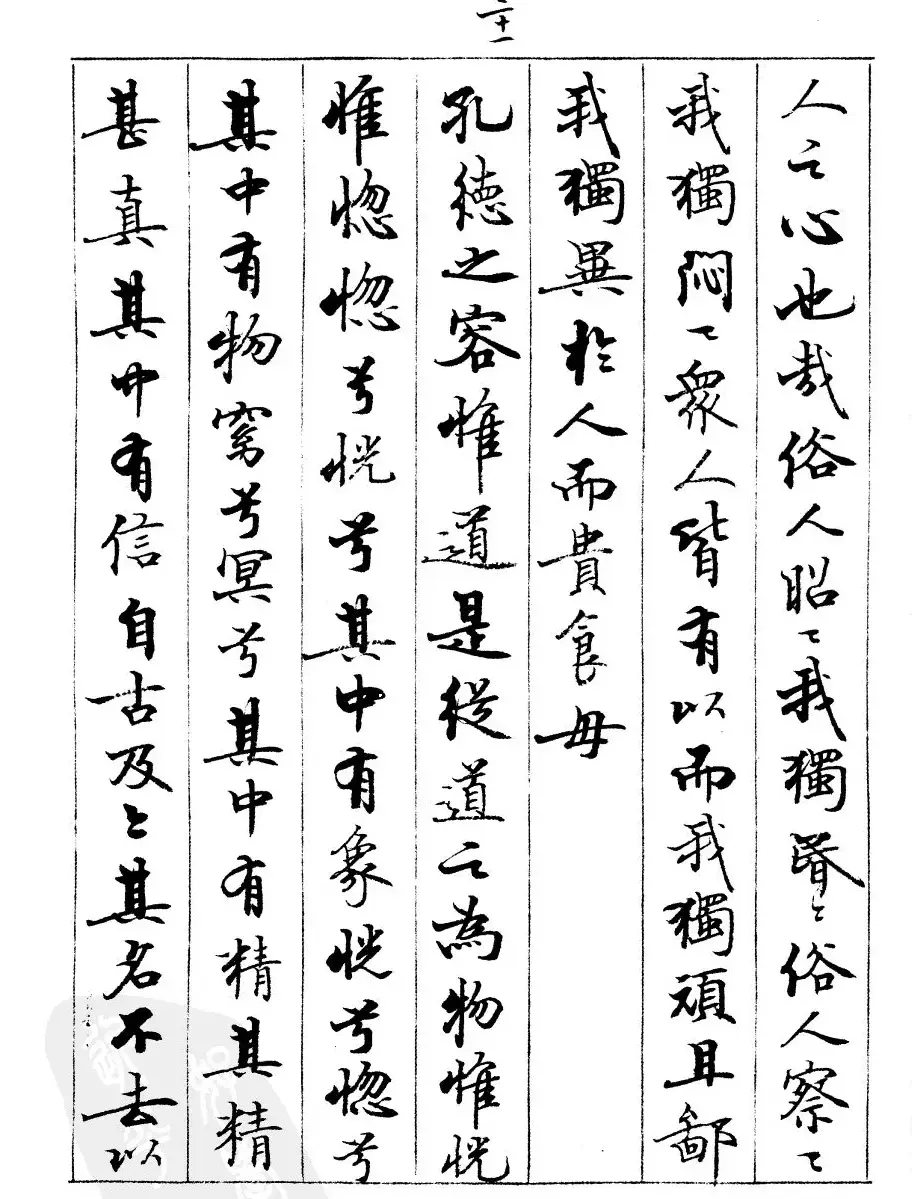 二十一
人之心也哉俗人昭々我獨昏々俗人察々
我獨悶々衆人皆有以而我獨頑且鄙
我獨異於人而貴食母
孔德之容惟道是從道之為物惟恍
惟惚惚兮恍兮其中有象恍兮惚兮
其中有物窈兮冥兮其中有精其精
甚真其中有信自古及今其名不去以